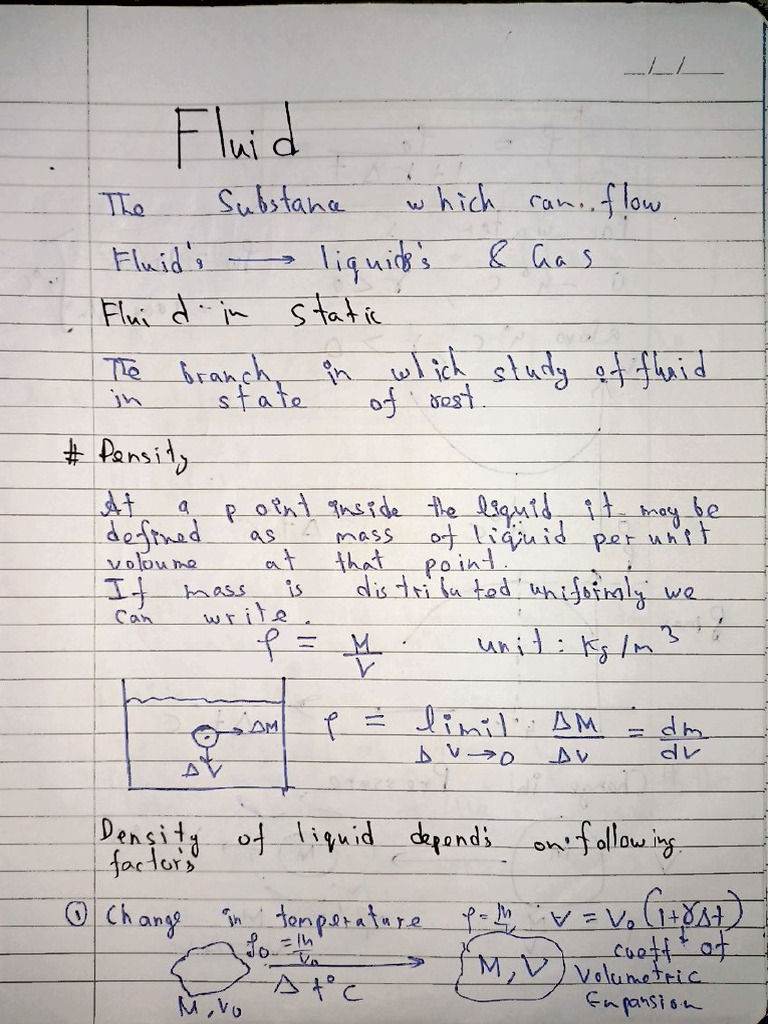 __/__/__
Fluid
The Substance which can flow
Fluid's → liquids's & Gas
Fluid in static
The branch in which study of fluid
in state of rest.
# Density
At a point inside the liquid it may be
defined as mass of liquid per unit
voloume at that point.
If mass is distributed uniformly we
can write.
ρ = M/V unit : Kg/m³
ρ = limit ΔV→0 ΔM/ΔV = dm/dv
ΔM
ΔV
Density of liquid depend's on following
factor's
① Change in temperature ρ = m/v V = V₀ (1+γΔt)
ρ₀ = m/V₀
Δt°C
M, V₀
M, V
coeff^t of
Volumetric
Expansion